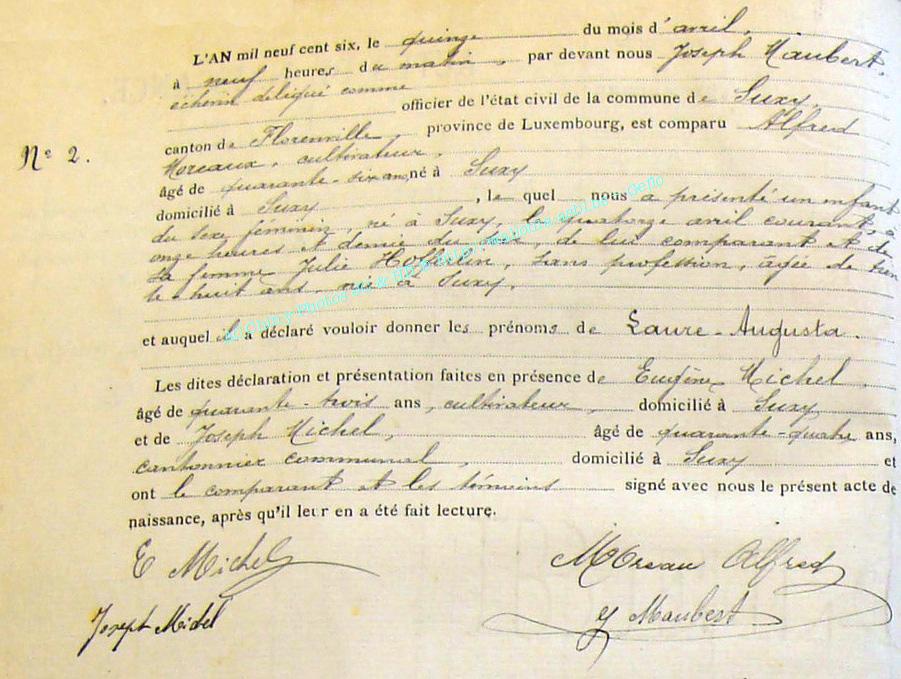 L'AN mil neuf cent six, le quinze du mois d'avril,
à neuf heures du matin, par devant nous Joseph Maubert,
échevin délégué comme
officier de l'état civil de la commune de Suxy,
canton de Florenville, province de Luxembourg, est comparu Alfred
Nº 2.
Moreaux, cultivateur,
âgé de quarante-six ans, né à Suxy
domicilié à Suxy, le quel nous a présenté un enfant
du sexe féminin, né à Suxy, le quatorze avril courant, à
onze heures et demie du soir, de lui comparant et de
sa femme Julie Hofferlin, sans profession, âgée de tren
te huit ans, née à Suxy,
et auquel il a déclaré vouloir donner les prénoms de Laure-Augusta.
Les dites déclaration et présentation faites en présence de Eugène Michel,
âgé de quarante-trois ans, cultivateur, domicilié à Suxy
et de Joseph Michel, âgé de quarante-quatre ans,
cantonnier communal, domicilié à Suxy et
ont le comparant et les témoins signé avec nous le présent acte de
naissance, après qu'il leur en a été fait lecture.
E Michel
Moreau Alfred
Joseph Michel
J Maubert